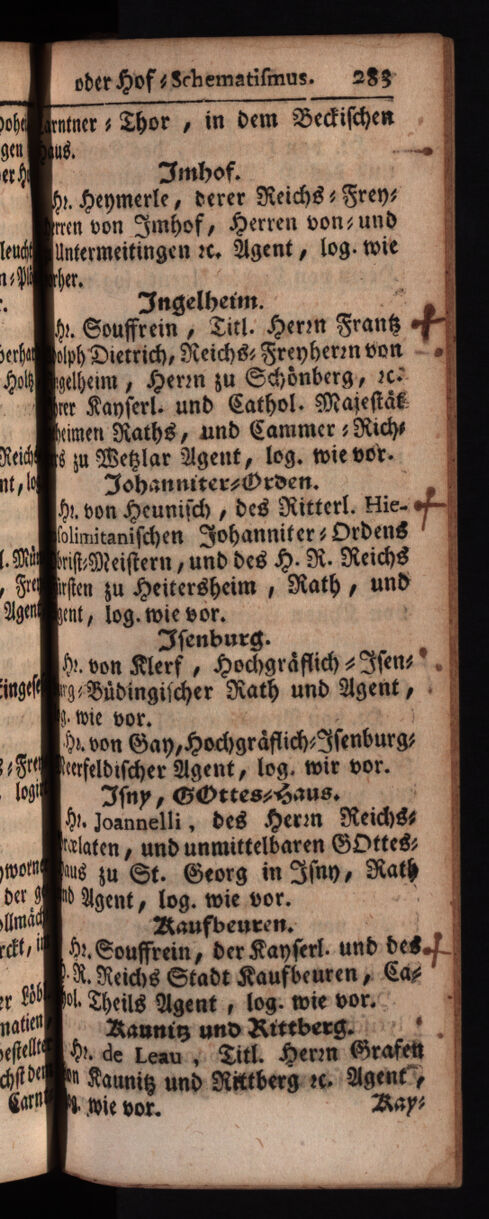 oder Hof-Schematismus. 283
arntner-Thor, in dem Beckischen
aus.
Imhof.
Hr. Heymerle, derer Reichs-Frey-
rren von Imhof, Herren von- und
Untermeitingen ꝛc. Agent, log. wie
rher.
Ingelheim.
Hr. Souffrein, Titl. Herrn Frantz
olph Dietrich, Reichs-Freyherrn von
gelheim, Herrn zu Schönberg, ꝛc.
rer Kayserl. und Cathol. Majestät
heimen Raths, und Cammer-Rich-
rs zu Wetzlar Agent, log. wie vor.
Johanniter-Orden.
Hr. von Heunisch, des Ritterl. Hie-
solimitanischen Johanniter-Ordens
brist-Meistern, und des H. R. Reichs
ürsten zu Heitersheim, Rath, und
gent, log. wie vor.
Isenburg.
Hr. von Klerf, Hochgräflich-Isen-
rg-Büdingischer Rath und Agent,
g. wie vor.
Hr. von Gay, Hochgräflich-Isenburg-
eerfeldischer Agent, log. wir vor.
Isny, GOttes-Haus.
Hr. Joannelli, des Herrn Reichs-
rælaten, und unmittelbaren GOttes-
aus zu St. Georg in Isny, Rath
nd Agent, log. wie vor.
Kaufbeuren.
Hr. Souffrein, der Kayserl. und des
. R. Reichs Stadt Kaufbeuren, Ca-
hol. Theils Agent, log. wie vor.
Kaunitz und Rittberg.
Hr. de Leau, Titl. Herrn Grafen
on Kaunitz und Rittberg ꝛc. Agent,
g. wie vor. Kay-